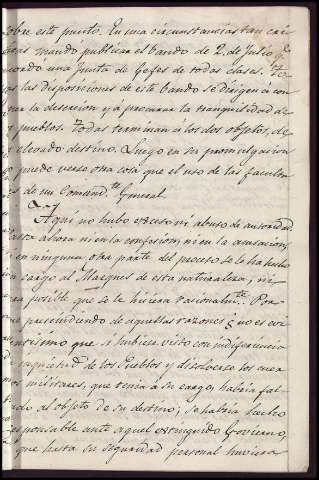 sobre este punto. En unas circunstancias tan crí-
ticas mandó publicar el bando de 2 de Julio, y
acordó una Junta de Gefes de todas clases. To-
das las disposiciones de este bando se dirigen á con-
tener la desercion, y á procurar la tranquilidad de
los pueblos. Todas terminan á los dos objetos, de
su elevado destino. Luego en su promulgacion
no puede verse otra cosa que el uso de las faculta-
des de un Comand.te General.
Aquí no hubo exceso ni abuso de autoridad.
Hasta ahora ni en la confesion, ni en la acusacion,
ni en ninguna otra parte del proceso se le ha hecho
cargo al Marques de esta naturaleza, ni
era posible que se le hiciera racionalm.te Por-
que prescindiendo de aquellas razones ¿no es cier-
tisimo que si hubiese visto con indiferencia
la inquietud de los Pueblos y disolverse los cuer-
pos militares, que tenia á su cargo, habria fal-
tado al objeto de su destino; se habria hecho
responsable ante aquel extinguido Govierno,
y que hasta su seguridad personal huviera